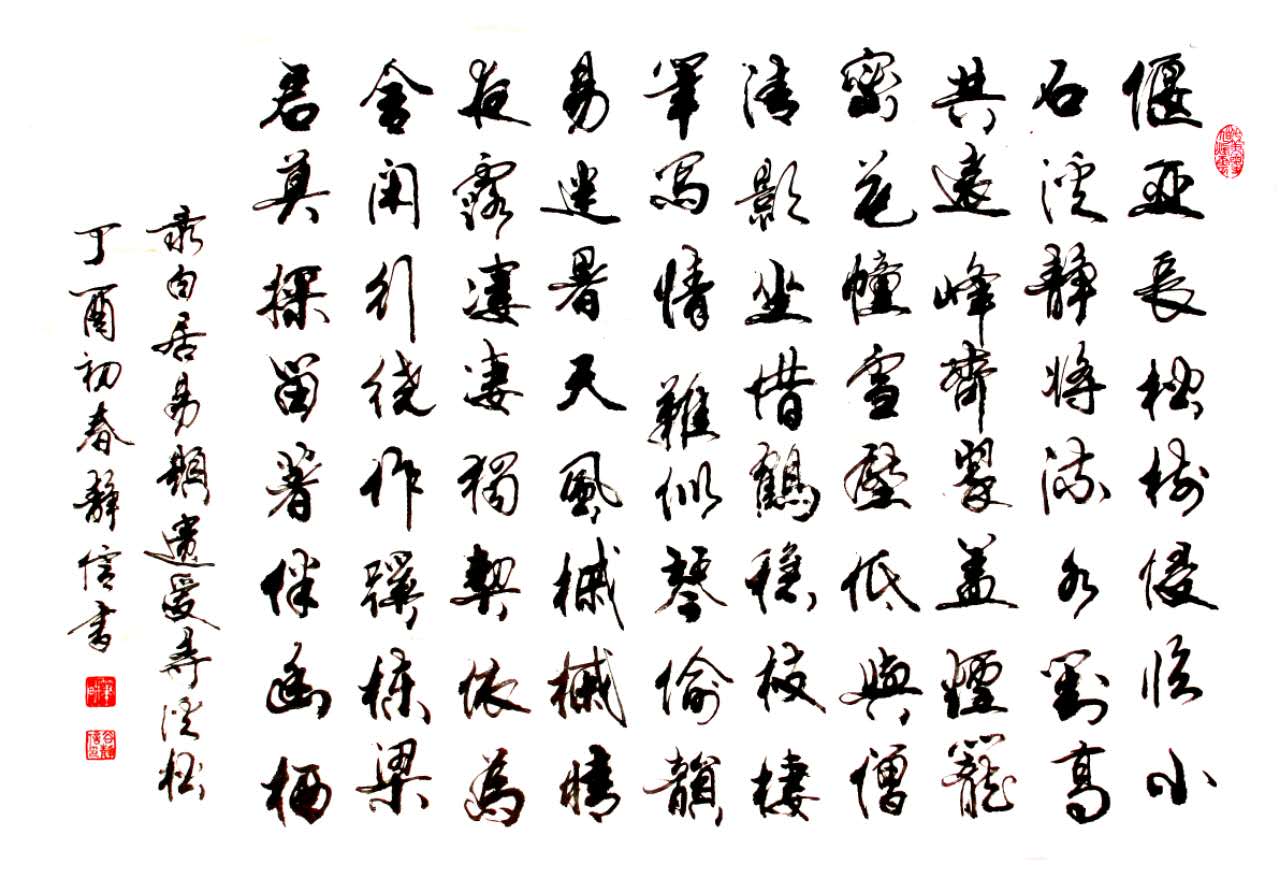 偃亞長松樹侵临小
石溪静将流水對高
共遠峰齊翠盖煙籠
密花幢雪壓低與僧
清影坐惜鶴穩枝棲
筆寫情難似琴偷韻
易迷暑天風槭槭晴
夜露凄凄獨契依為
舍闲行绕作蹊棟梁
君莫採留著伴幽栖
录白居易題遺愛寺溪松
丁酉初春静信书